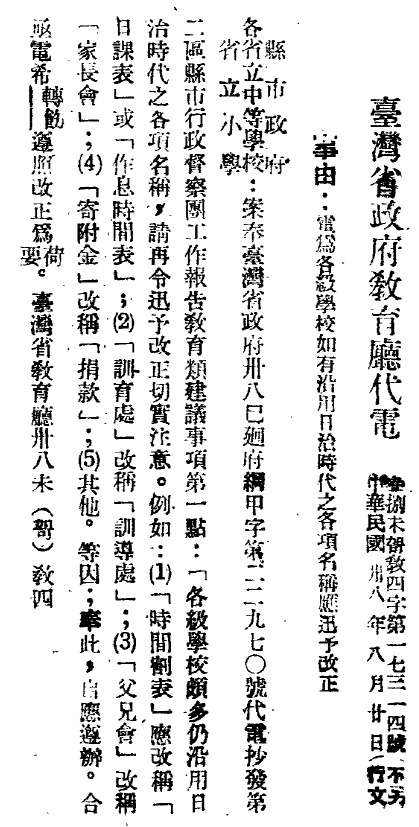 臺灣省政府教育廳代電
捌未哿教四字第一七三一四號（不另行文）
中華民國卅八年八月廿日
事由：電爲各級學校如有沿用日治時代之各項名稱應迅予改正
縣市政府
各省立中等學校：案奉臺灣省政府卅八巳廻府綱甲字第二二九七〇號代電抄發第
省立小學
二區縣市行政督察團工作報告教育類建議事項第一點：「各級學校頗多仍沿用日
治時代之各項名稱，請再令迅予改正切實注意。例如：(1)「時間割表」應改稱「
日課表」或「作息時間表」；(2)「訓育處」改稱「訓導處」；(3)「父兄會」改稱
「家長會」；(4)「寄附金」改稱「捐款」；(5)其他。等因；奉此，自應遵辦。合
亟電希轉飭遵照改正爲荷要。臺灣省教育廳卅八未（哿）教四